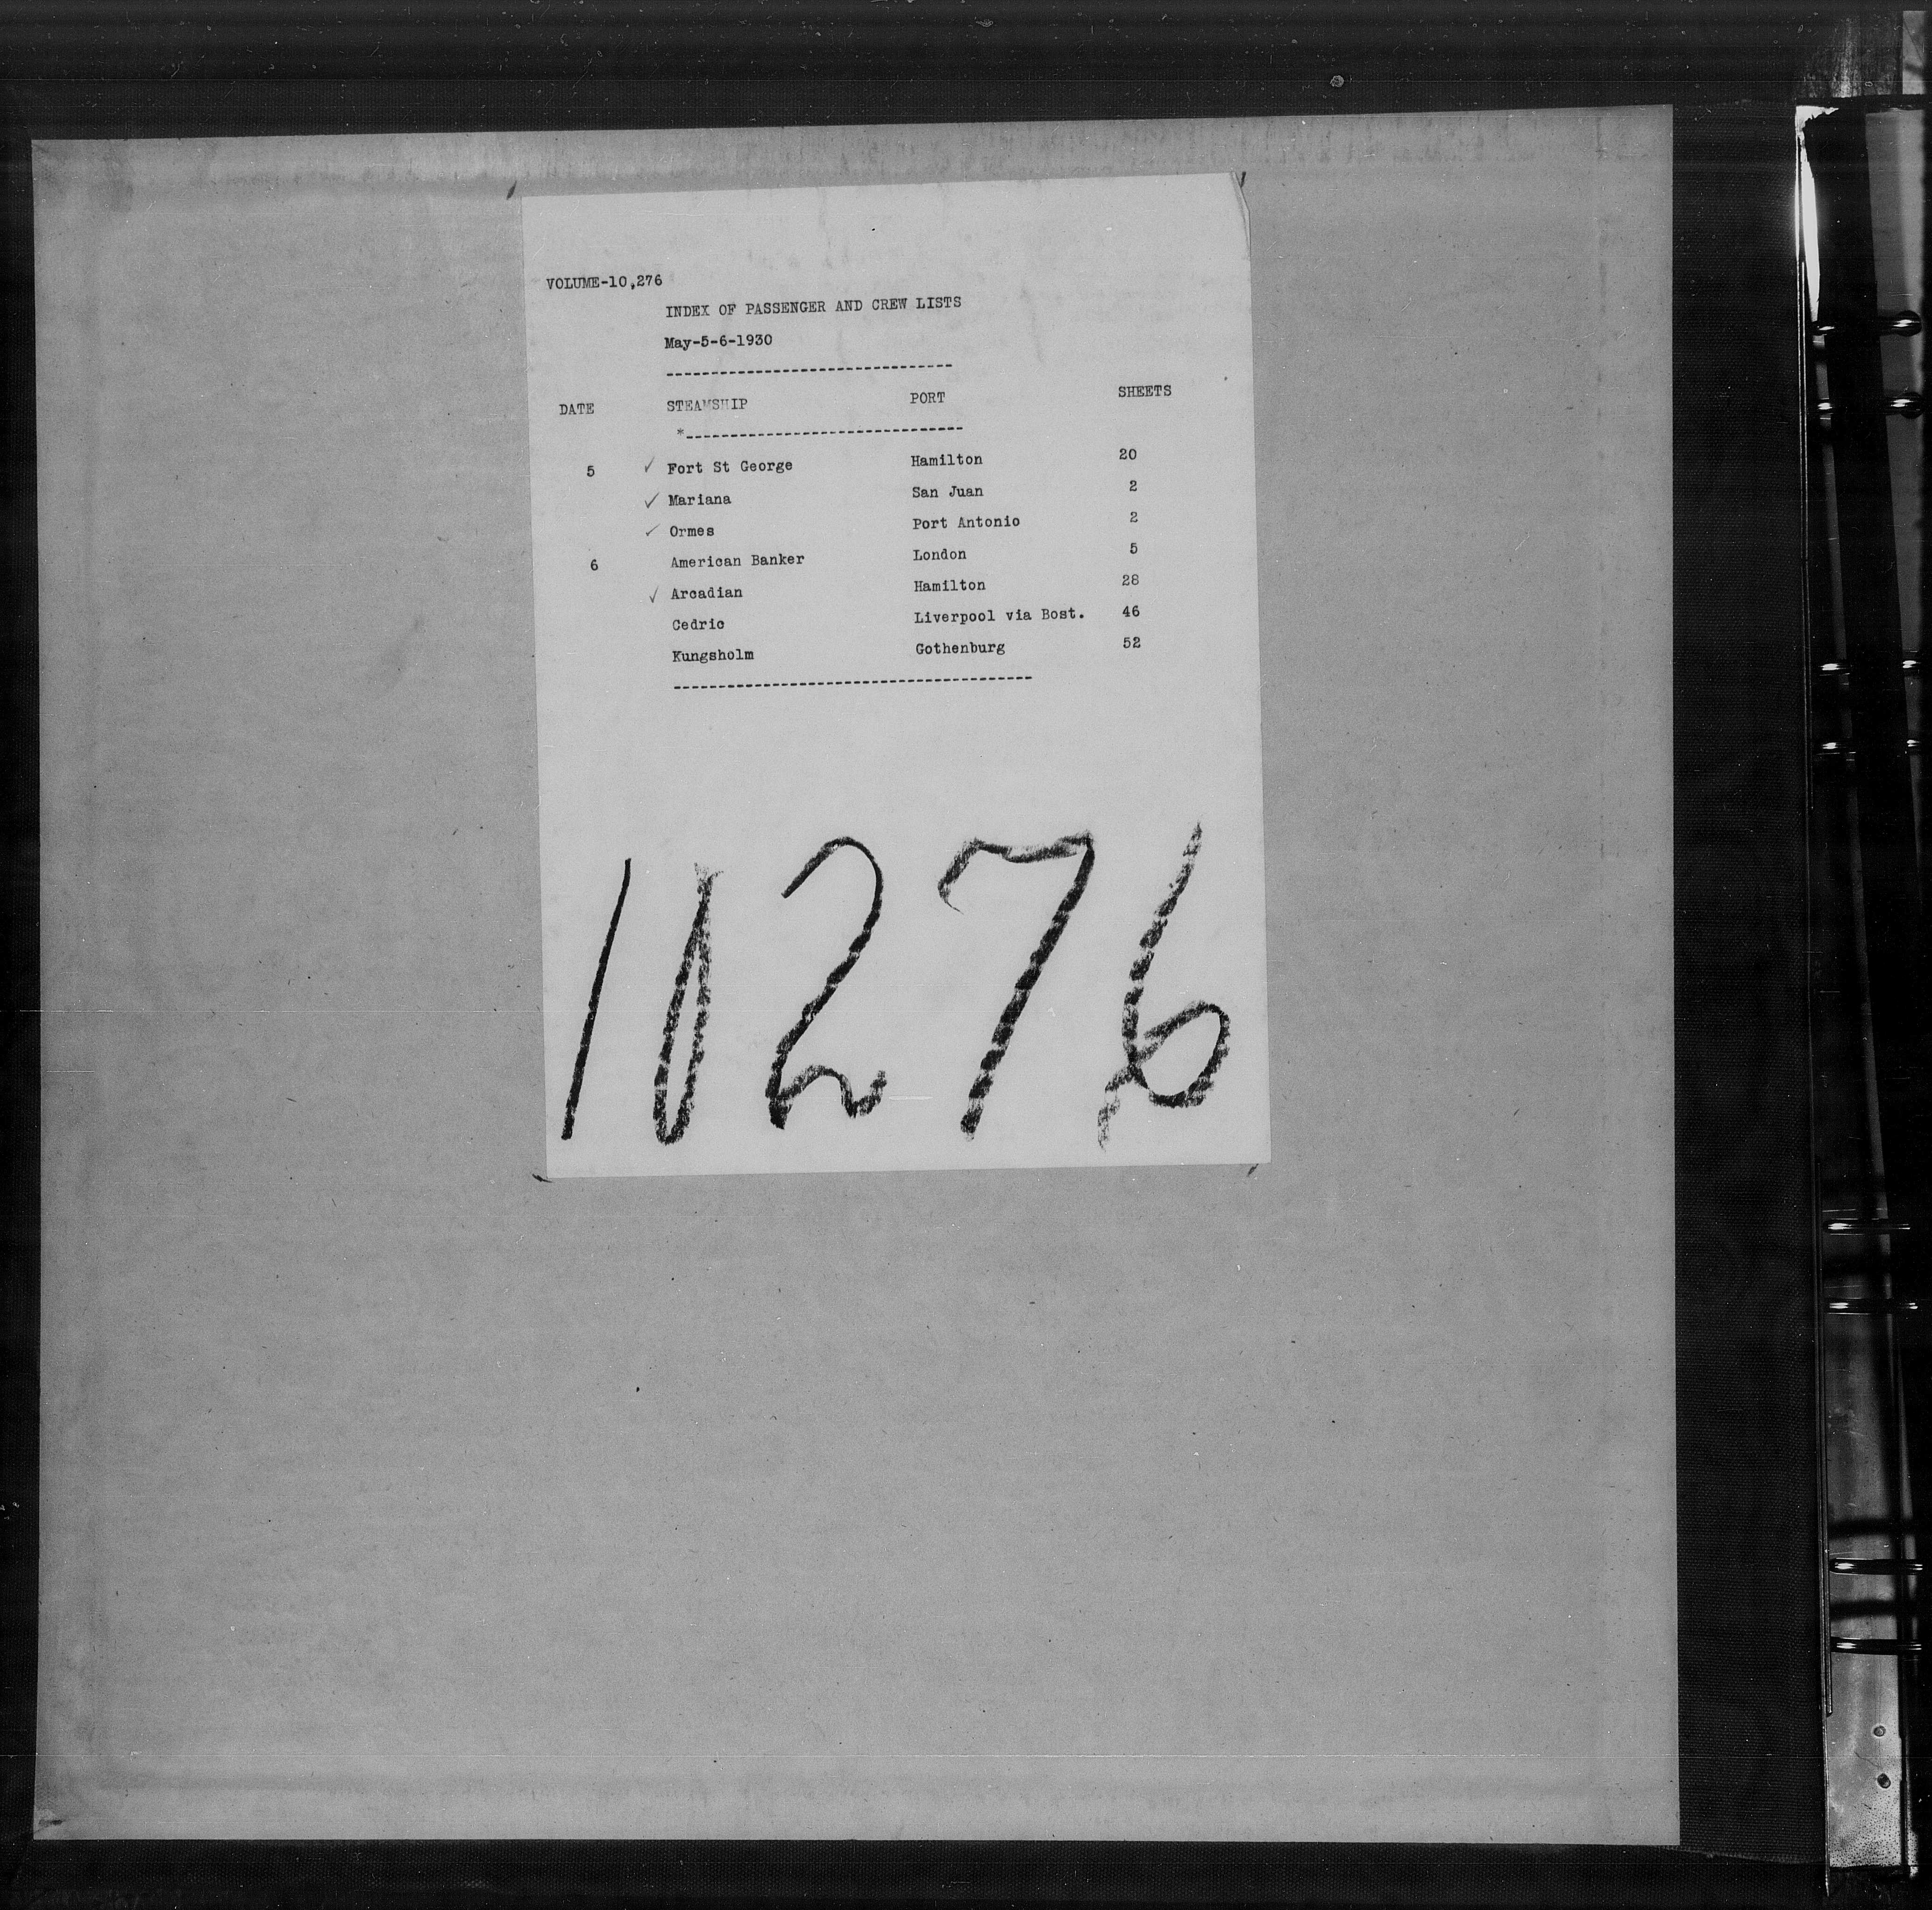 VOLUME-10,276
INDEX OF PASSENGER AND CREW LISTS
May-5-6-1930
--------------------------------
DATE STEAMSHIP PORT SHEETS
*-------------------------------
5 ✓ Fort St George Hamilton 20
✓ Mariana San Juan 2
✓ Ormes Port Antonio 2
6 American Banker London 5
✓ Arcadian Hamilton 28
Cedric Liverpool via Bost. 46
Kungsholm Gothenburg 52
----------------------------------------
10276